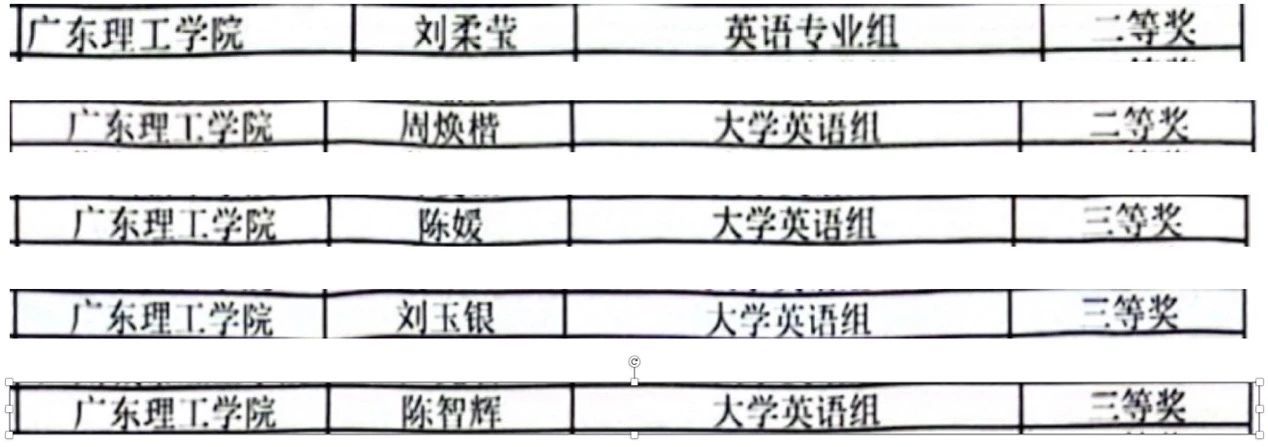 广东理工学院 刘柔莹 英语专业组 二等奖
广东理工学院 周焕楷 大学英语组 二等奖
广东理工学院 陈媛 大学英语组 三等奖
广东理工学院 刘玉银 大学英语组 三等奖
广东理工学院 陈智辉 大学英语组 三等奖